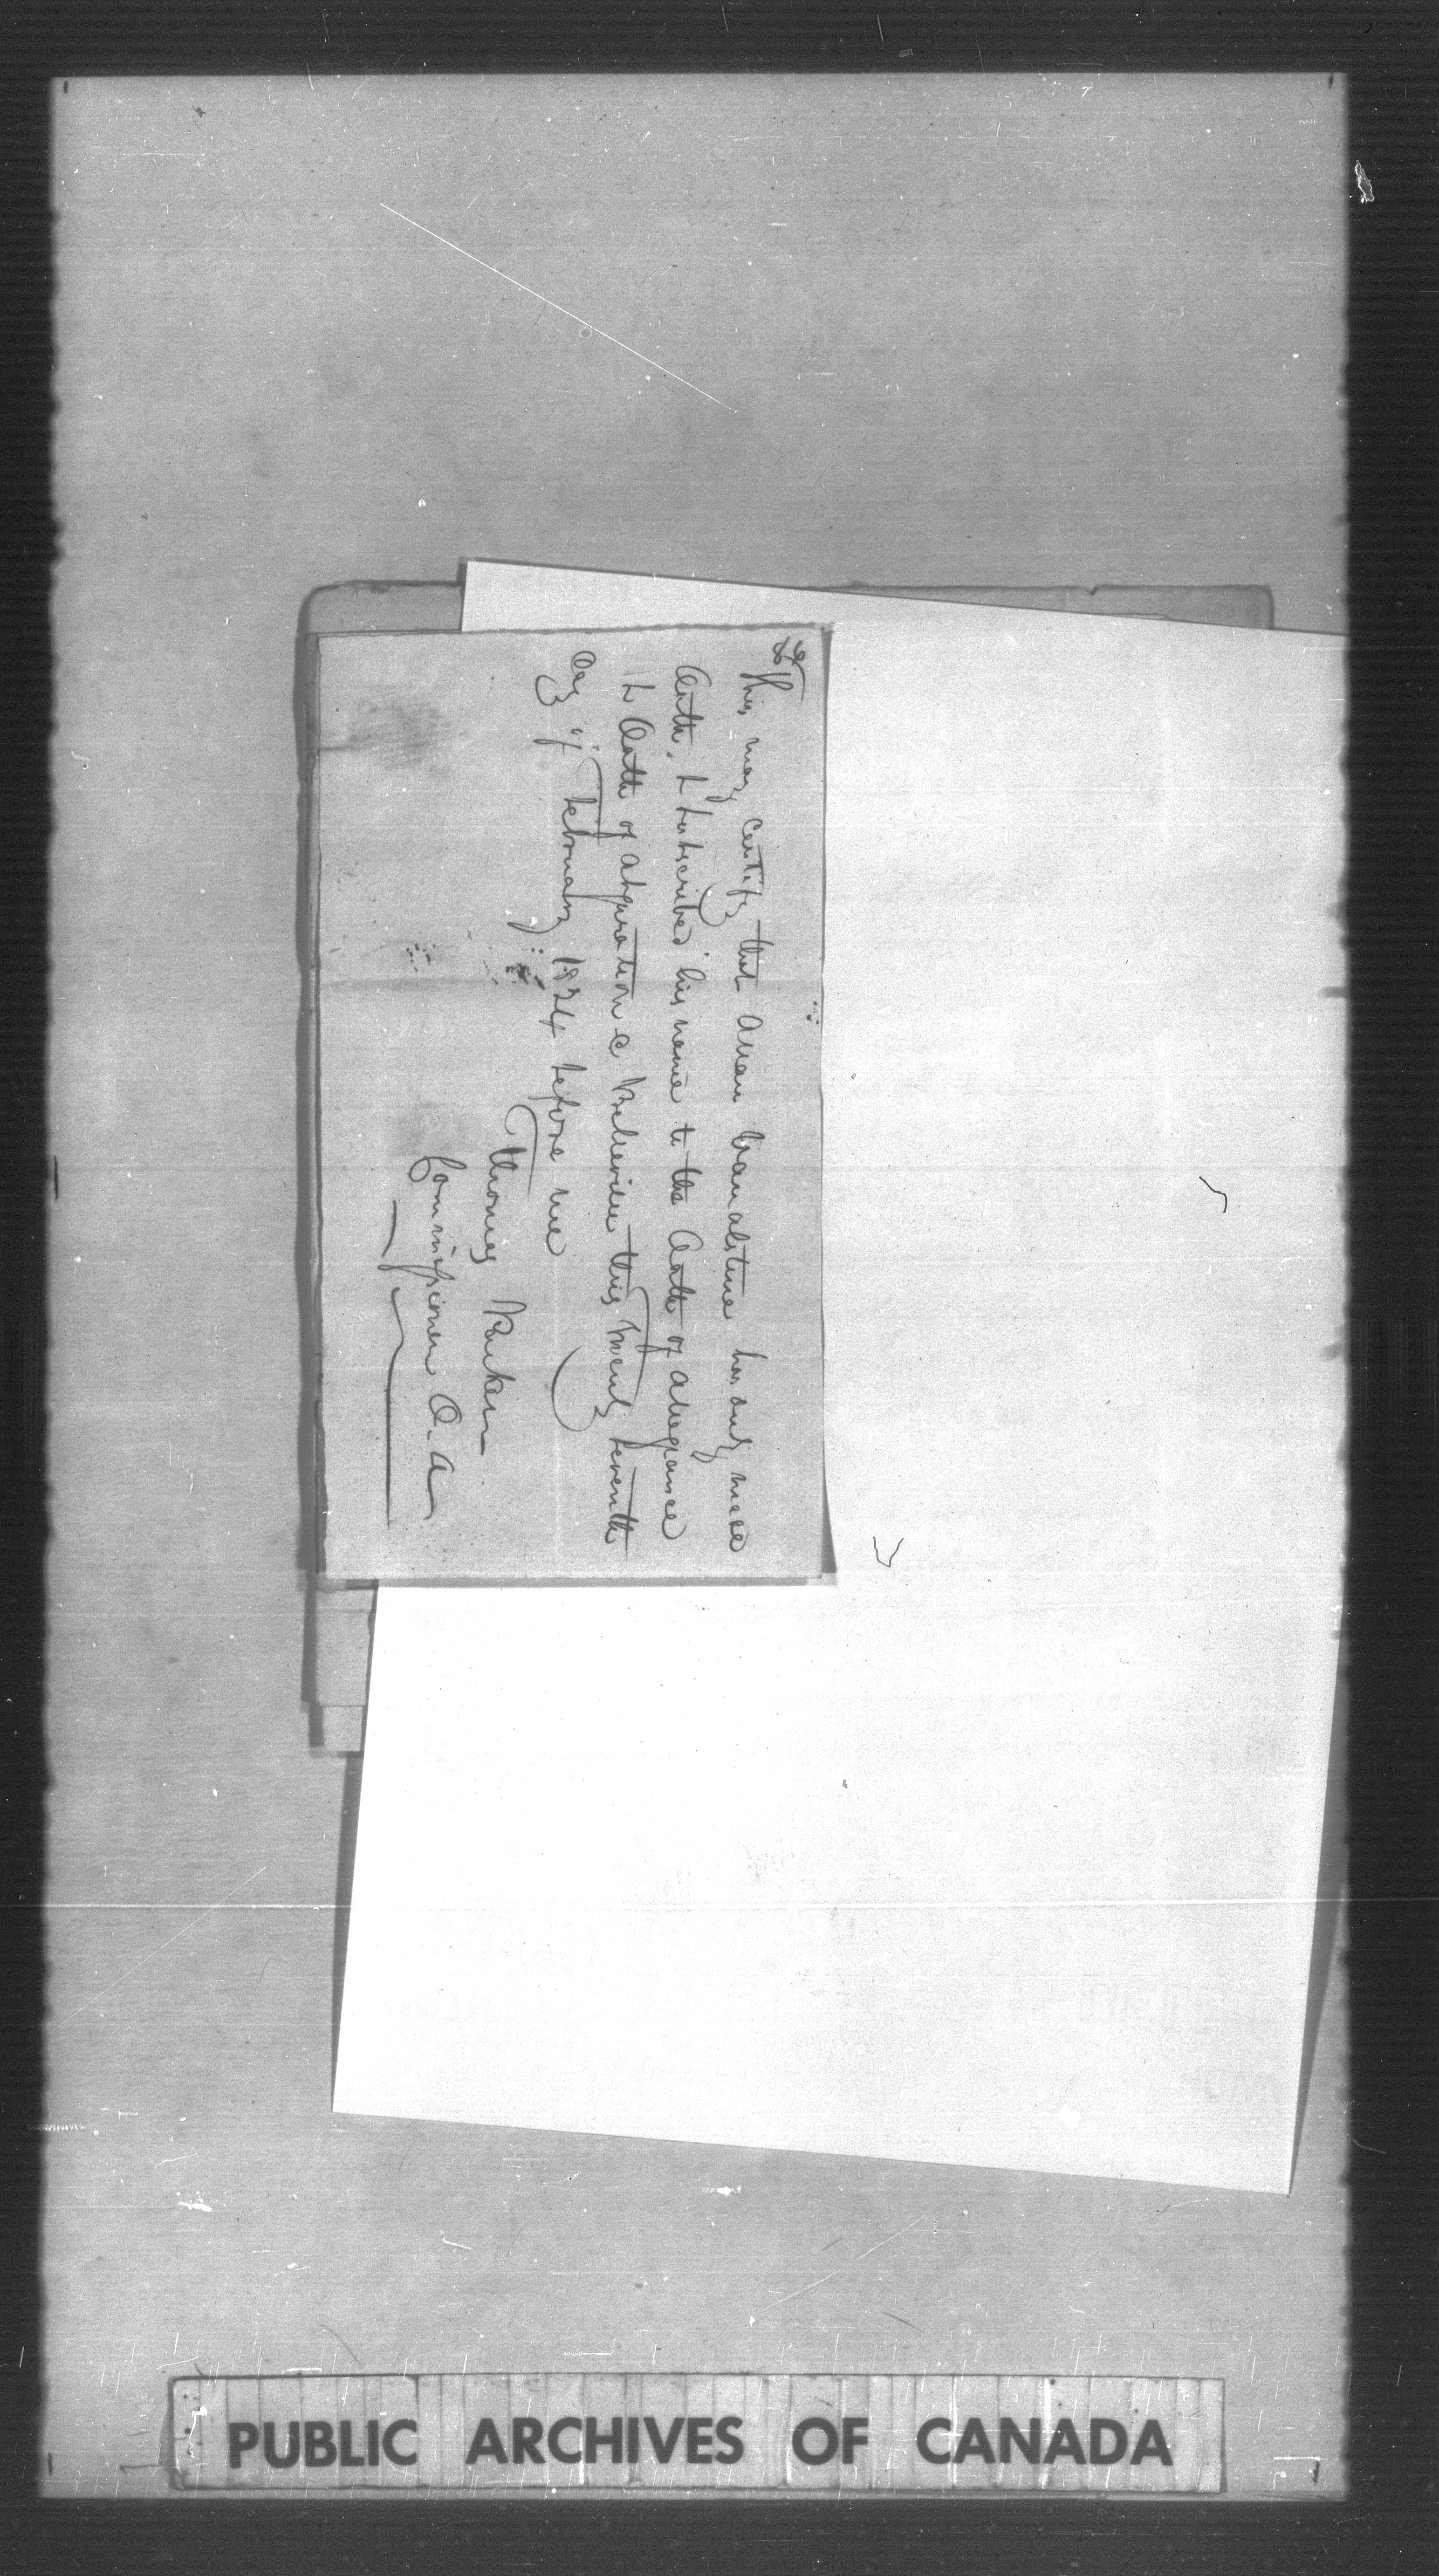 This may certify that Allan has duly made
Oath & subscribed his name to the Oath of allegiance
& Oath of abjuration @ Belleville this Twenty seventh
day of February 1824 before me
Thomas Parker
Commissioner O. A
PUBLIC ARCHIVES OF CANADA